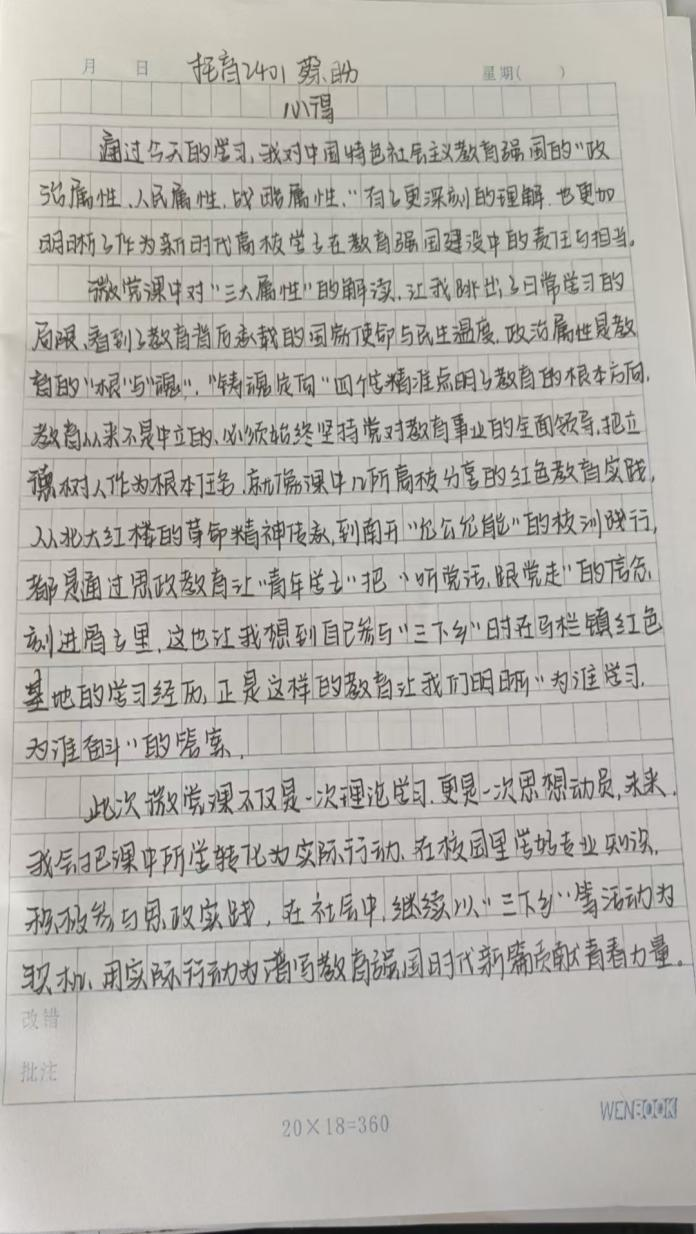 月 日 托育2401 蔡盼 星期( )
心得
通过今天的学习,我对中国特色社会主义教育强国的"政
治属性、人民属性、战略属性,"有了更深刻的理解,也更加
明晰了作为新时代高校学子在教育强国建设中的责任与担当。
微党课中对"三大属性"的解读,让我跳出了日常学习的
局限,看到了教育背后承载的国家使命与民生温度,政治属性是教
育的"根"与"魂","铸魂定向"四个字精准点明了教育的根本方向,
教育从来不是中立的,必须始终坚持党对教育事业的全面领导,把立
德树人作为根本任务,就像课中几所高校分享的红色教育实践,
从北大红楼的革命精神传承,到南开"允公允能"的校训践行,
都是通过思政教育让"青年学子"把"听党话,跟党走"的信念
刻进骨子里,这也让我想到自己参与"三下乡"时在马栏镇红色
基地的学习经历,正是这样的教育让我们明晰"为谁学习,
为谁奋斗"的答案,
此次微党课不仅是一次理论学习,更是一次思想动员,未来,
我会把课中所学转化为实际行动,在校园里学好专业知识,
积极参与思政实践,在社会中,继续以"三下乡"等活动为
契机,用实际行动为谱写教育强国时代新篇贡献青春力量。
改错
批注
20×18=360
WENBOOK